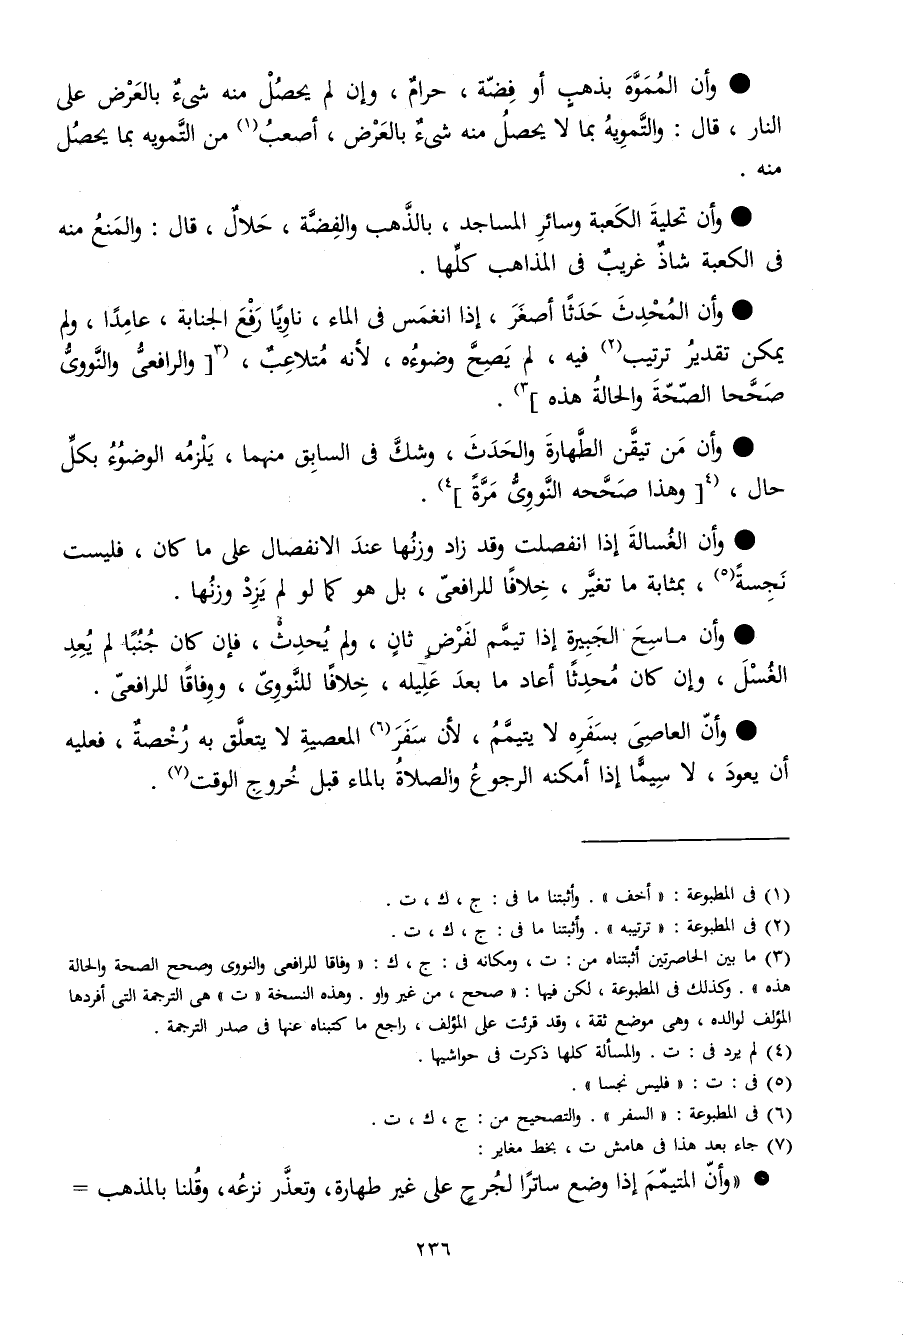 ● وأن المُمَوَّهَ بذهبٍ أو فِضّة ، حرامٌ ، وإن لم يحصُلْ منه شىءٌ بالعَرْض على
النار ، قال : والتَّموِيهُ بما لا يحصلُ منه شىءٌ بالعَرْض ، أصعبُ(١) من التَّمويه بما يحصُل
منه .
● وأن تحليةَ الكَعبة وسائرِ المساجد ، بالذَّهب والفِضَّة ، حَلالٌ ، قال : والمَنعُ منه
فى الكعبة شاذٌ غريبٌ فى المذاهب كلِّها .
● وأن المُحْدِثَ حَدَثًا أصغَرَ ، إذا انغمَس فى الماء ، ناوِيًا رَفْعَ الجنابة ، عامِدًا ، ولم
يمكن تقديرُ ترتيب(٢) فيه ، لم يَصِحَّ وضوءُه ، لأنه مُتلاعِبٌ ، (٣[ والرافعىُّ والنَّووىُّ
صَحَّحا الصّحّةَ والحالةُ هذه ]٣) .
● وأن مَن تيقَّن الطَّهارةَ والحَدَثَ ، وشكَّ فى السابِق منهما ، يَلْزمُه الوضوُءُ بكلِّ
حال ، (٤[ وهذا صَحَّحه النَّووِىُّ مَرَّةً ]٤) .
● وأن الغُسالةَ إذا انفصلت وقد زاد وزنُها عندَ الانفصال على ما كان ، فليست
نَجِسةً(٥) ، بمثابة ما تغيَّر ، خِلافًا للرافعىّ ، بل هو كما لو لم يَزِدْ وزنُها .
● وأن ماسِحَ الجَبِيرة إذا تيمَّم لفَرْضٍ ثانٍ ، ولم يُحدِثْ ، فإن كان جُنُبًا لم يُعِدِ
الغُسْلَ ، وإن كان مُحدِثًا أعاد ما بعدَ عَلِيله ، خِلافًا للنَّووِىّ ، ووِفاقًا للرافعىّ .
● وأنّ العاصِىَ بسَفَرِه لا يتيمَّمُ ، لأن سَفَرَ(٦) المعصيةِ لا يتعلَّق به رُخْصةٌ ، فعليه
أن يعودَ ، لا سِيمَّا إذا أمكنه الرجوعُ والصلاةُ بالماء قبل خُروجِ الوقت(٧) .
(١) فى المطبوعة : « أخف » . وأثبتنا ما فى : ج ، ك ، ت .
(٢) فى المطبوعة : « ترتيبه » . وأثبتنا ما فى : ج ، ك ، ت .
(٣) ما بين الحاصرتين أثبتناه من : ت ، ومكانه فى : ج ، ك : « وفاقا للرافعى والنووى وصحح الصحة والحالة
هذه » . وكذلك فى المطبوعة ، لكن فيها : « صحح ، من غير واو . وهذه النسخة « ت » هى الترجمة التى أفردها
المؤلف لوالده ، وهى موضع ثقة ، وقد قرئت على المؤلف ، راجع ما كتبناه عنها فى صدر الترجمة .
(٤) لم يرد فى : ت . والمسألة كلها ذكرت فى حواشيها .
(٥) فى : ت : « فليس نجسا » .
(٦) فى المطبوعة : « السفر » . والتصحيح من : ج ، ك ، ت .
(٧) جاء بعد هذا فى هامش ت ، بخط مغاير :
● «وأنّ المتيمّمَ إذا وضع ساترًا لجُرحٍ على غير طهارة، وتعذَّر نزعُه، وقُلنا بالمذهب =
٢٣٦